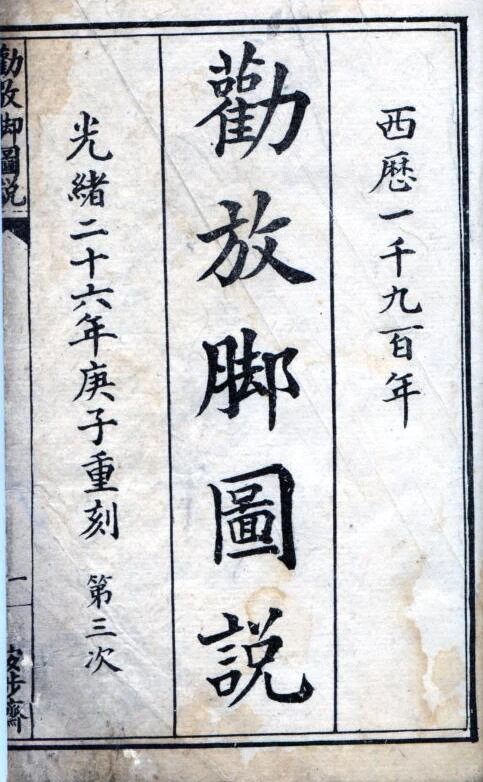 西歷一千九百年
勸放脚圖説
光緒二十六年庚子重刻 第三次
勸放脚圖説
一